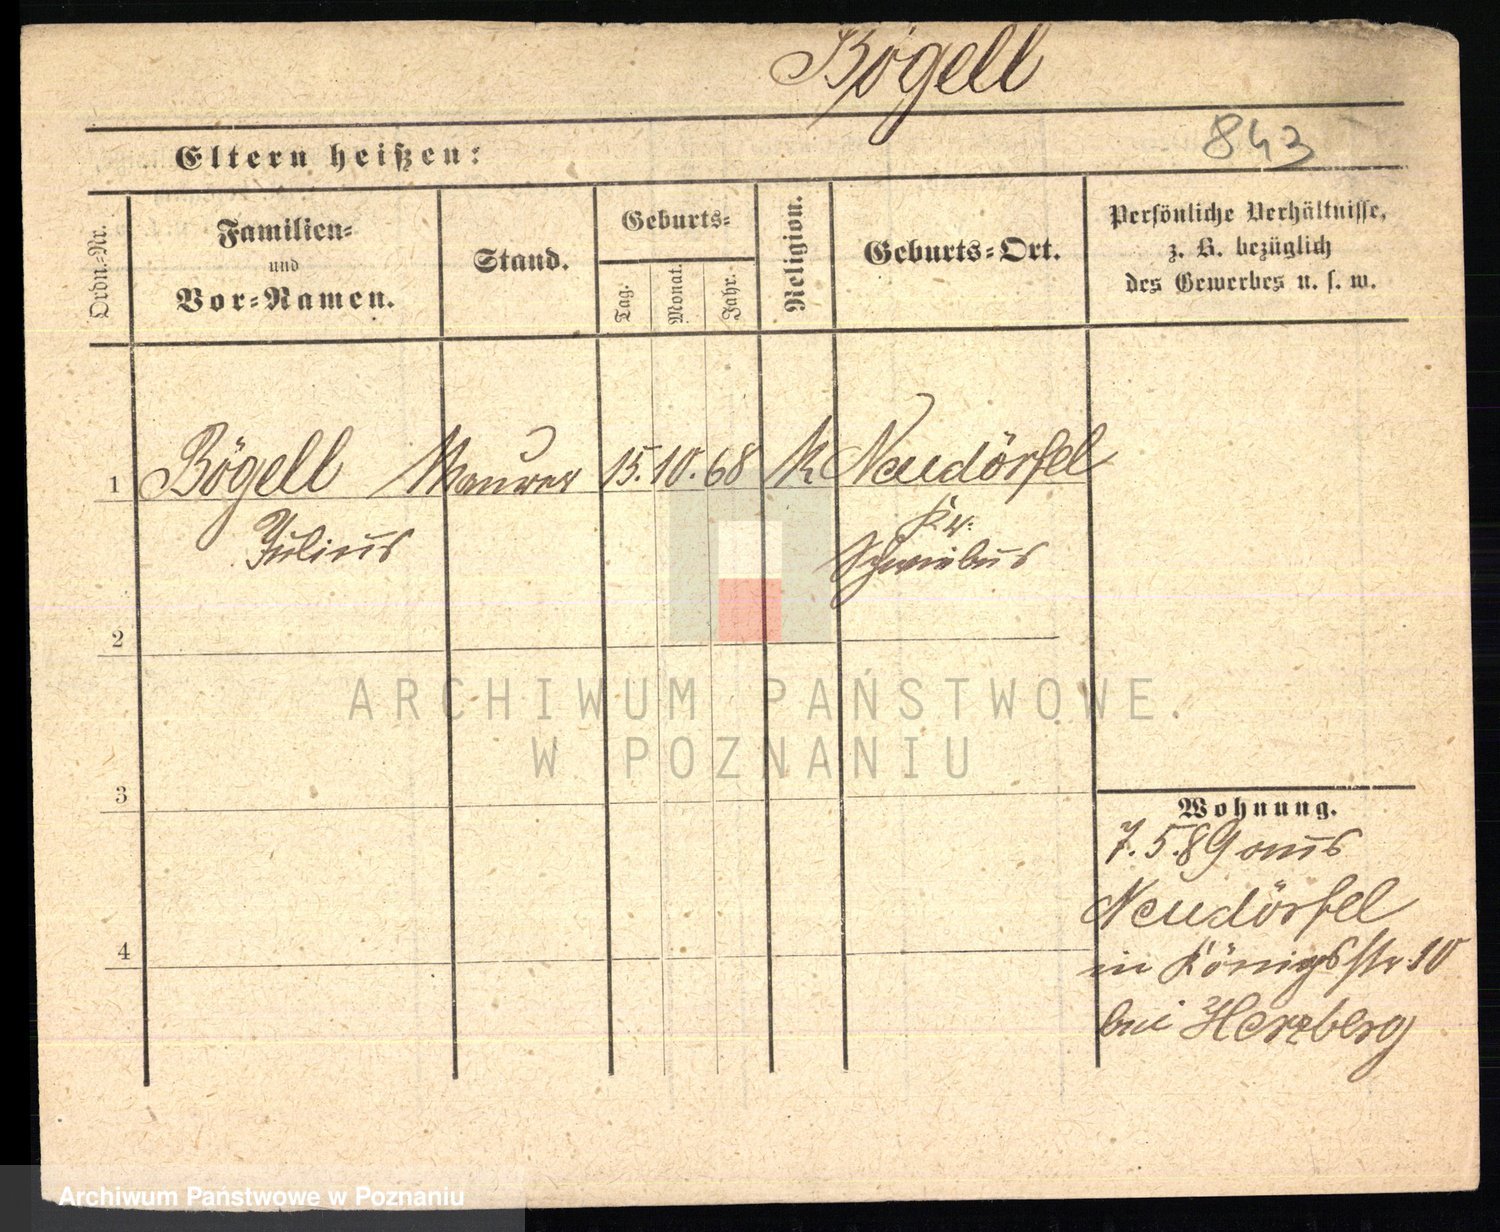 Bögell
843
Eltern heißen:
Ordn.-Nr.
Familien-
und
Vor-Namen.
Stand.
Geburts-
Tag.
Monat.
Jahr.
Religion.
Geburts-Ort.
Persönliche Verhältnisse,
z. B. bezüglich
des Gewerbes u. s. w.
1 Bögell Maurer 15. 10. 68 K Neudörfel
Julius
Kr.
Schwiebus
2
3
4
Wohnung.
7.5.89 aus
Neudörfel
in Königsstr. 10
bei Herzberg
ARCHIWUM PAŃSTWOWE
W POZNANIU
Archiwum Państwowe w Poznaniu